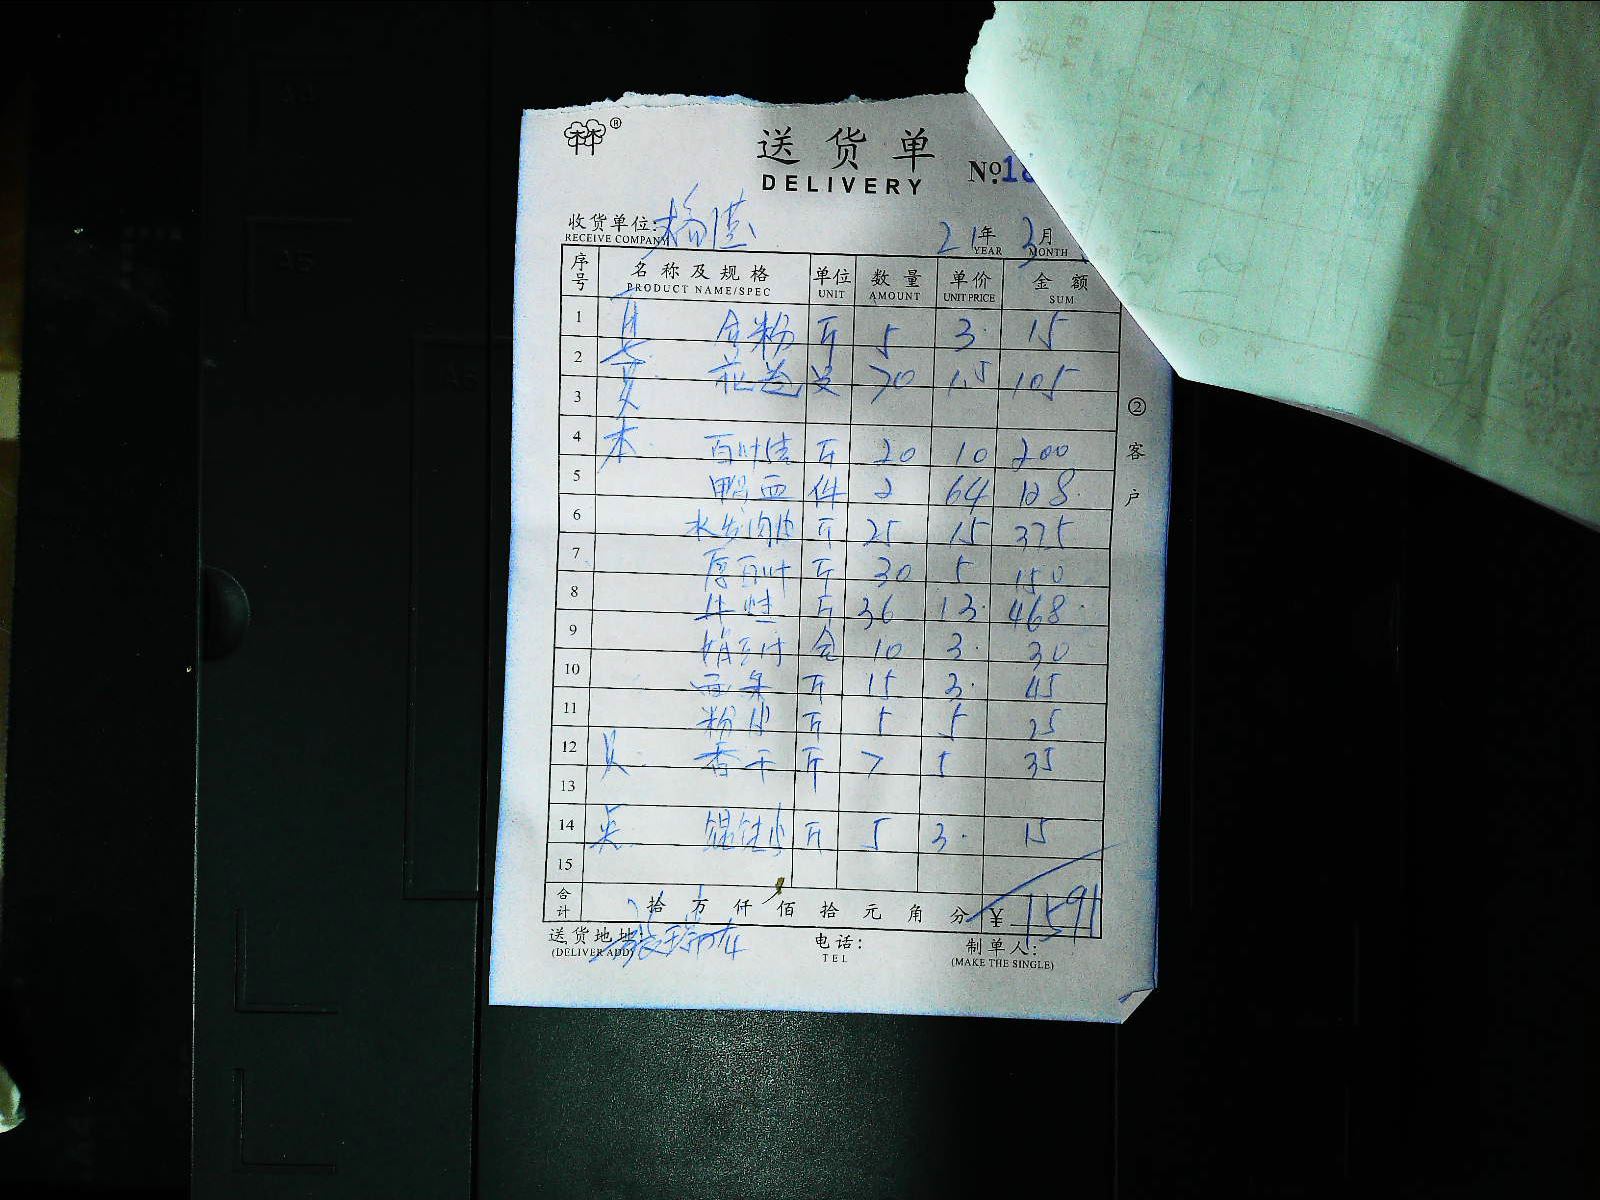 林 ®
送 货 单
DELIVERY
№18
收货单位:
RECEIVE COMPANY
21年 3月
YEAR MONTH
序号 名称及规格 单位 数量 单价 金额
PRODUCT NAME/SPEC UNIT AMOUNT UNIT PRICE SUM
1 粉 斤 5 3 15
2 花卷 70 1.5 105
3
4 本 百叶结 斤 20 10 200
5 鸭血 件 2 64 128
6 水发肉皮 斤 25 15 375
7 厚百叶 斤 30 5 150
8 斤 36 13 468
9 盒 10 3 30
10 面条 斤 15 3 45
11 粉皮 斤 5 5 25
12 香干 斤 7 5 35
13
14 馄饨皮 斤 5 3 15
15
合计 拾 万 仟 佰 拾 元 角 分 ¥ 1591
送货地址:
(DELIVER ADD)
电话:
TEL
制单人:
(MAKE THE SINGLE)
②客户